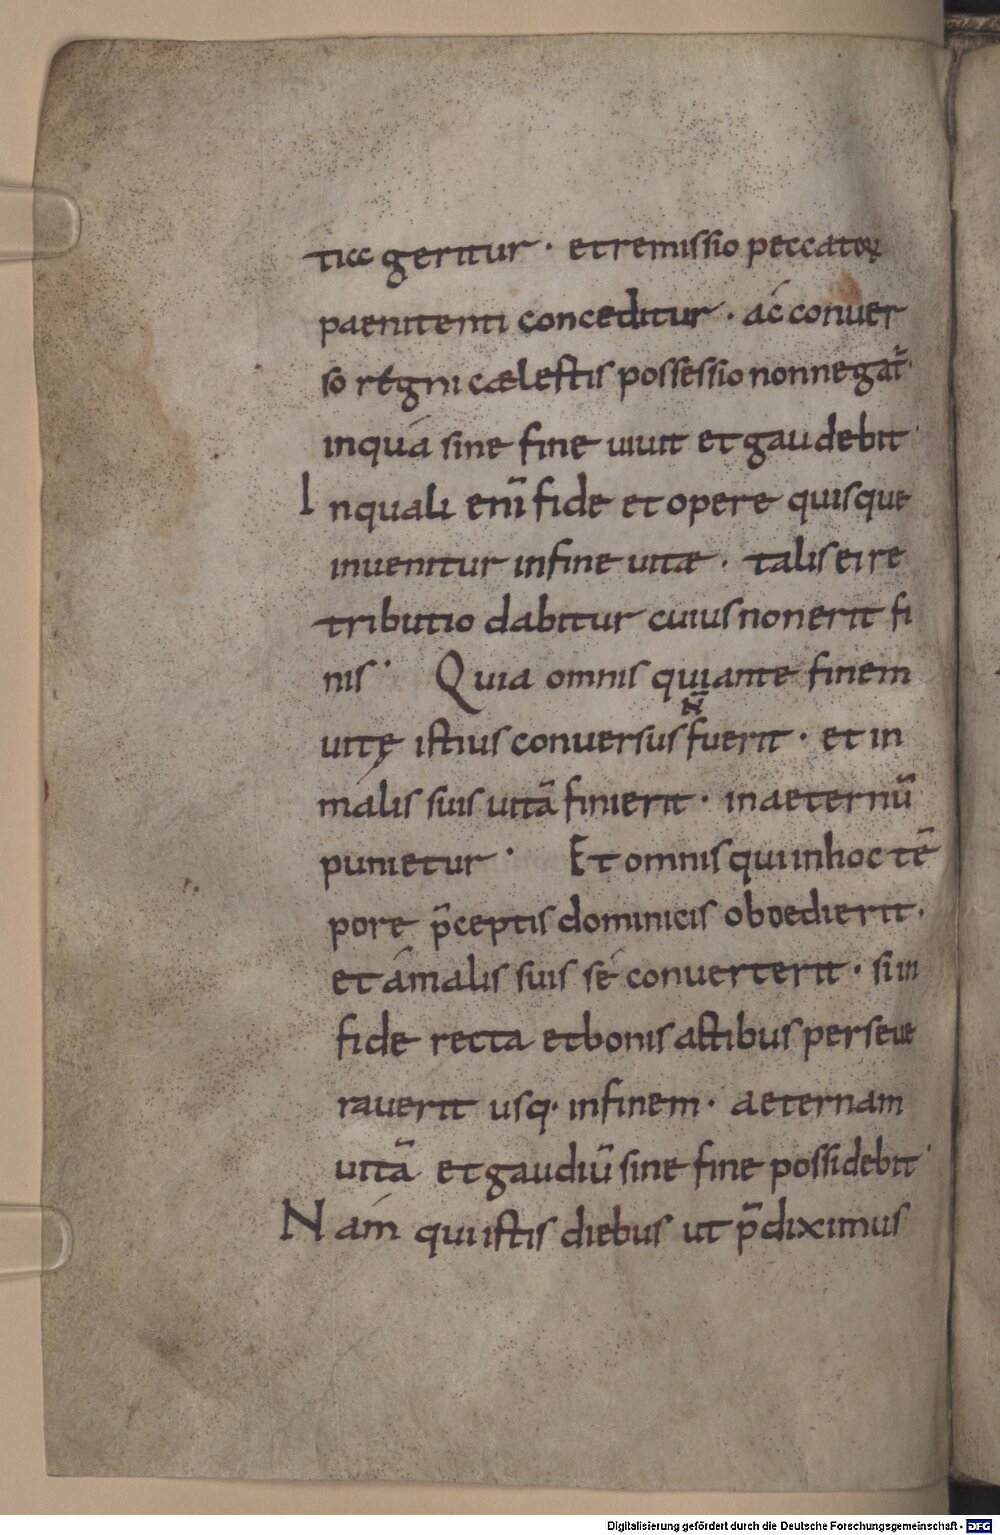 ticc geritur · et remissio peccatoꝝ
paenitenti conceditur · ac conuer
so regni cælestis possessio non negat̄
in qua sine fine uiuit et gaudebit
In quali eni̅ fide et opere quisque
inuenitur in fine uitæ · talis ei re
tributio dabitur cuius non erit fi
nis · Quia omnis qui ante finem
uitę istius conuersus n̄ fuerit · et in
malis suis uitā finierit · in aeternū
punietur · Et omnis qui in hoc tē
pore p̄ceptis dominicis oboedierit ·
et á malis suis sé conuerterit · si in
fide recta et bonis actibus perseue
rauerit usq· in finem · aeternam
uitā et gaudiū sine fine possidebit
Nam qui istis diebus ut p̄diximus
Digitalisierung gefördert durch die Deutsche Forschungsgemeinschaft - DFG